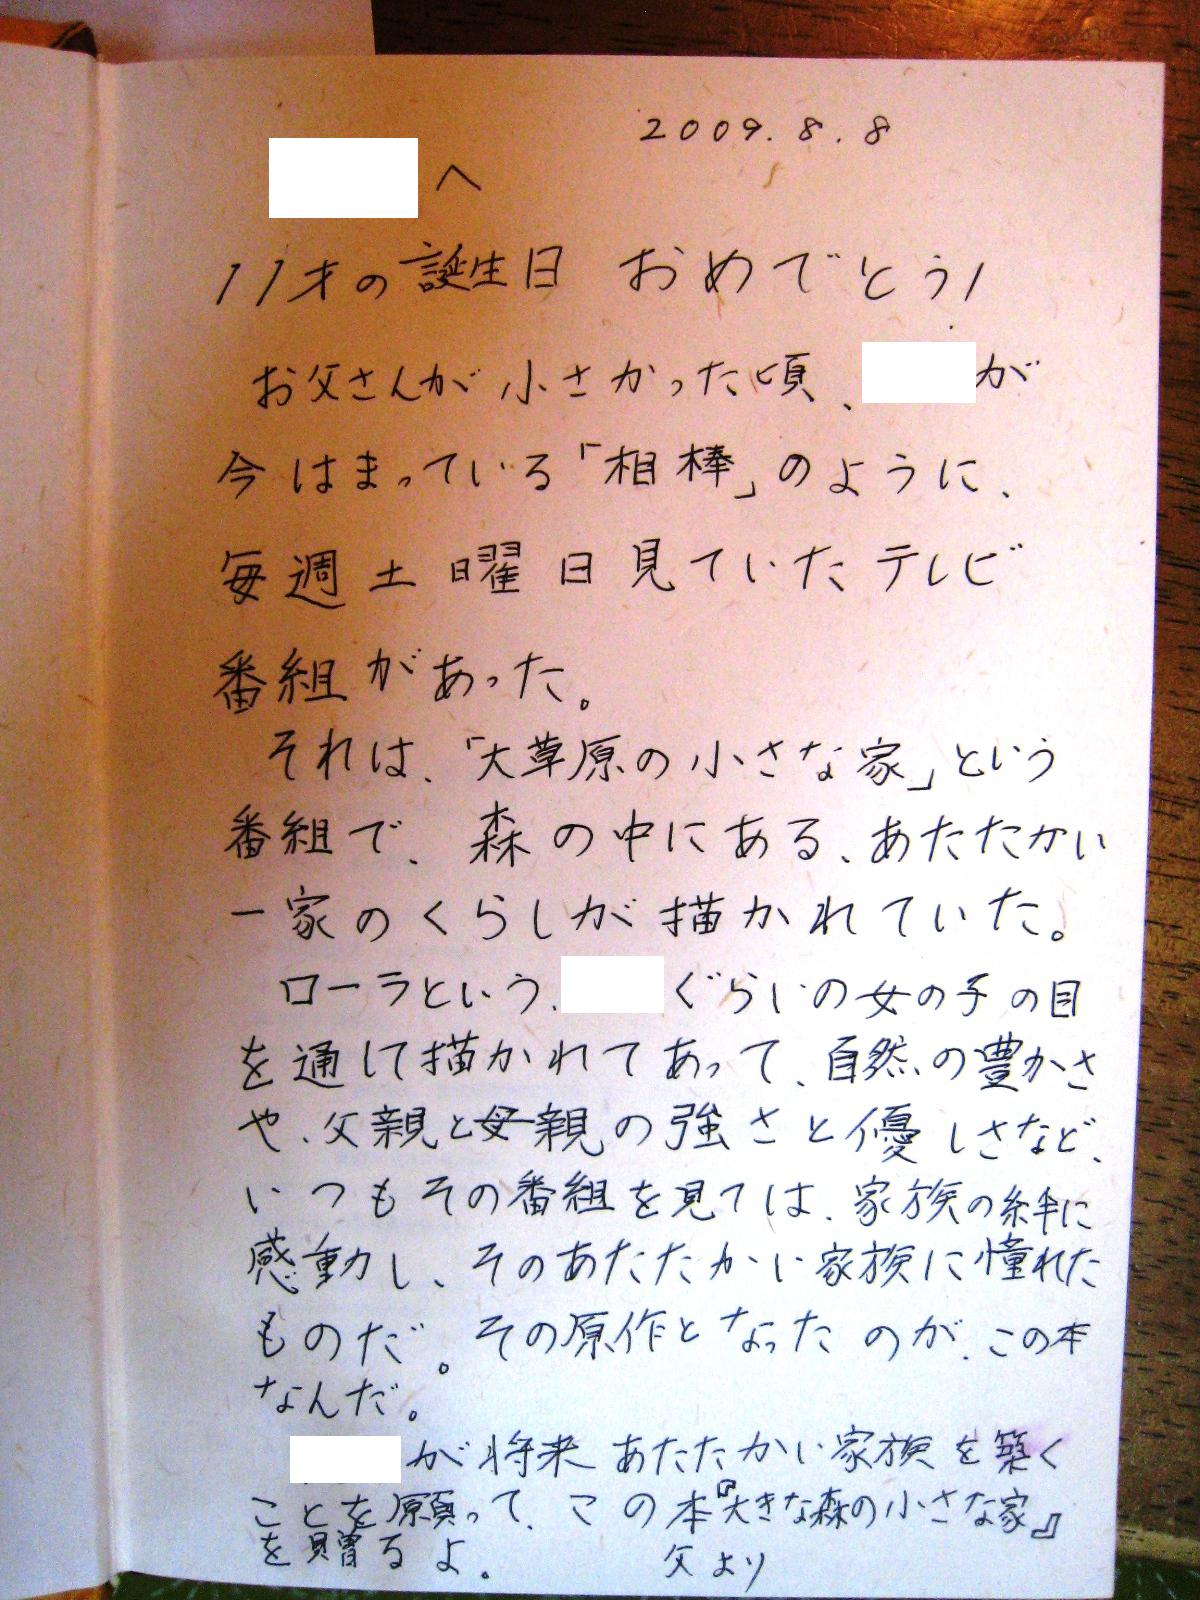 2009.8.8
へ
11才の誕生日 おめでとう!
お父さんが小さかった頃、 が
今はまっている「相棒」のように、
毎週土曜日見ていたテレビ
番組があった。
それは、「大草原の小さな家」という
番組で、森の中にある、あたたかい
一家のくらしが描かれていた。
ローラという、 ぐらいの女の子の目
を通して描かれてあって、自然の豊かさ
や、父親と母親の強さと優しさなど、
いつもその番組を見ては、家族の絆に
感動し、そのあたたかい家族に憧れた
ものだ。その原作となったのが、この本
なんだ。
が将来あたたかい家族を築く
ことを願って、この本『大きな森の小さな家』
を贈るよ。
父より